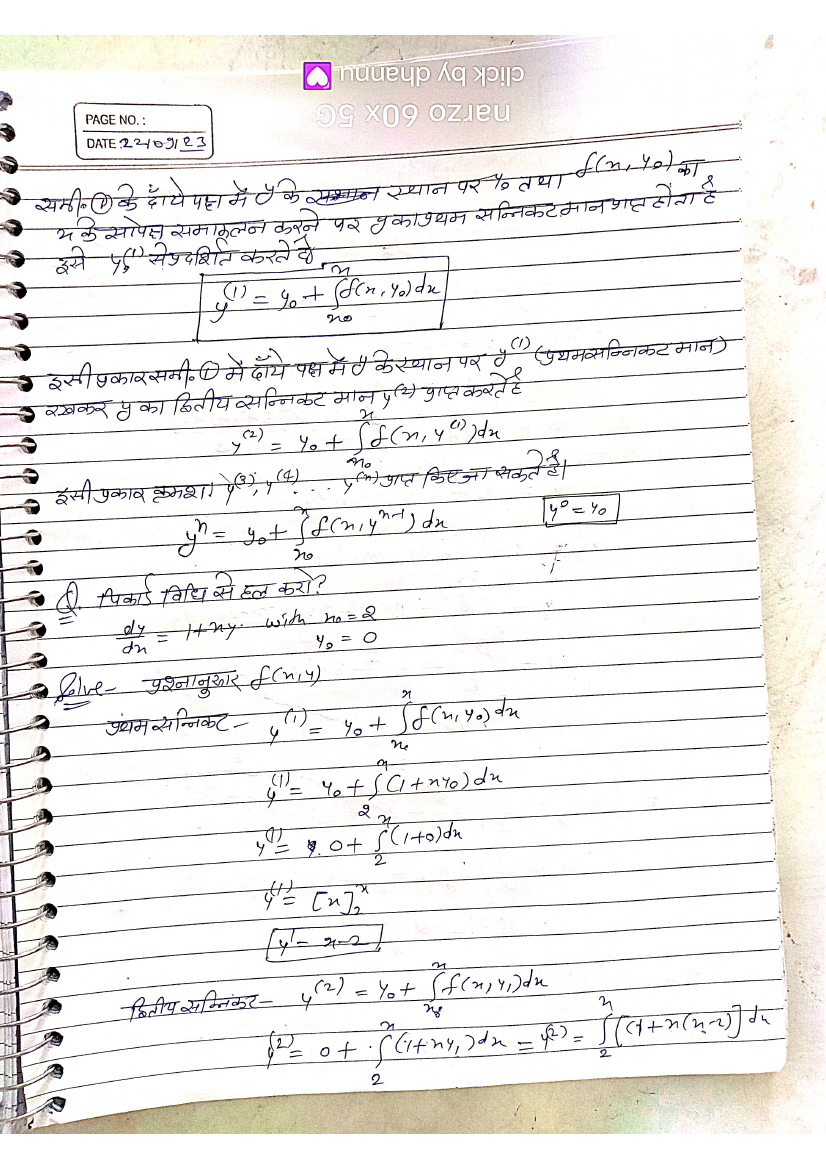 click by dhannu
narzo 60x 5G
PAGE NO. :
DATE 22/09/23
समी. ① के दाँये पक्ष में y के स्थान पर y₀ तथा f(x, y₀) का
x के सापेक्ष समाकलन करने पर y का प्रथम सन्निकट मान प्राप्त होता है
इसे y⁽¹⁾ से प्रदर्शित करते है
y⁽¹⁾ = y₀ + ∫_{x₀}^{x} f(x, y₀) dx
इसी प्रकार समी. ① में दाँये पक्ष में y के स्थान पर y⁽¹⁾ (प्रथम सन्निकट मान)
रखकर y का द्वितीय सन्निकट मान y⁽²⁾ प्राप्त करते है
y⁽²⁾ = y₀ + ∫_{x₀}^{x} f(x, y⁽¹⁾) dx
इसी प्रकार क्रमशः y⁽³⁾, y⁽⁴⁾ ... y⁽ⁿ⁾ प्राप्त किए जा सकते है।
yⁿ = y₀ + ∫_{x₀}^{x} f(x, yⁿ⁻¹) dx y⁰ = y₀
Q. पिकार्ड विधि से हल करो?
dy/dx = 1+xy. with x₀ = 2
y₀ = 0
Solve- प्रश्नानुसार f(x, y)
प्रथम सन्निकट - y⁽¹⁾ = y₀ + ∫_{x₀}^{x} f(x, y₀) dx
y⁽¹⁾ = y₀ + ∫_{2}^{x} (1+xy₀) dx
y⁽¹⁾ = 0 + ∫_{2}^{x} (1+0) dx
y⁽¹⁾ = [x]₂ˣ
y¹ = x-2
द्वितीय सन्निकट - y⁽²⁾ = y₀ + ∫_{x₀}^{x} f(x, y₁) dx
y⁽²⁾ = 0 + ∫_{2}^{x} (1+xy₁) dx = y⁽²⁾ = ∫_{2}^{x} [(1+x(x-2)] dx